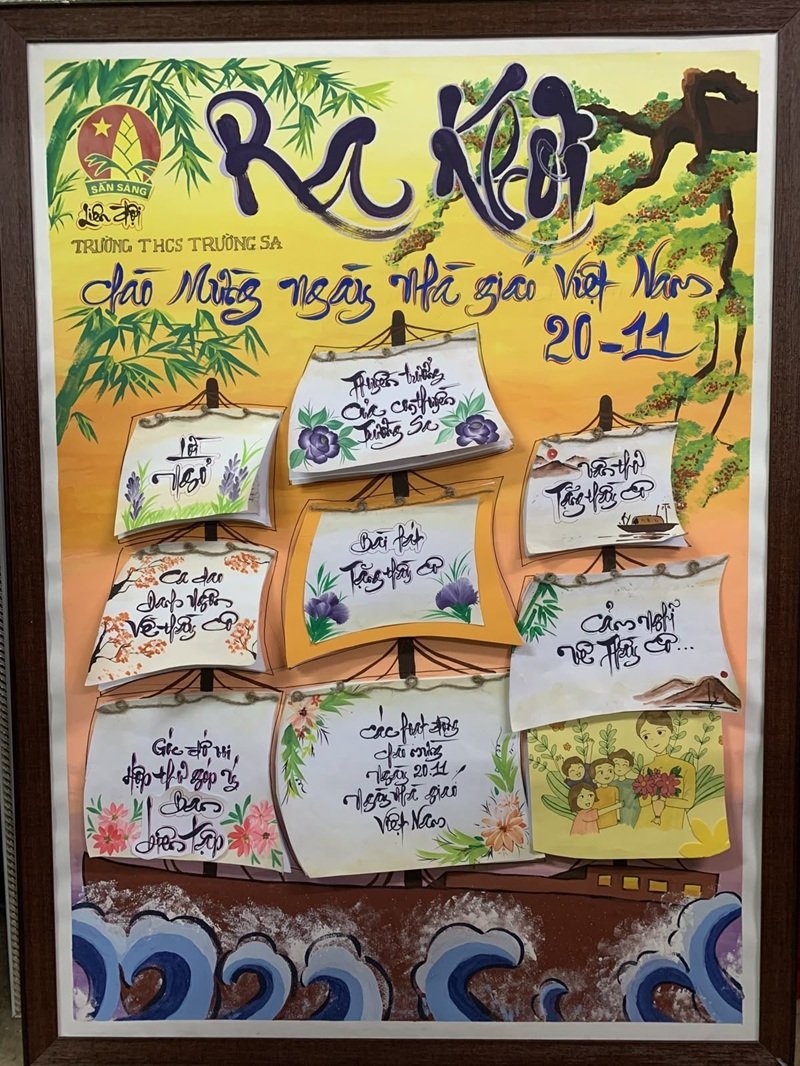 Ra Khơi
SẴN SÀNG
Liên đội
TRƯỜNG THCS TRƯỜNG SA
Chào Mừng ngày nhà giáo Việt Nam
20-11
Lời
Ngỏ
Thuyền trưởng
Của con thuyền
Trường Sa
Vần thơ
Tặng thầy cô
Ca dao
Danh ngôn
Về thầy cô
Bài hát
Tặng thầy cô
Cảm nghĩ
Về Thầy Cô...
Góc đố vui
Hộp thư góp ý
Ban
biên tập
Các hoạt động
chào mừng
ngày 20.11
Ngày nhà giáo
Việt Nam